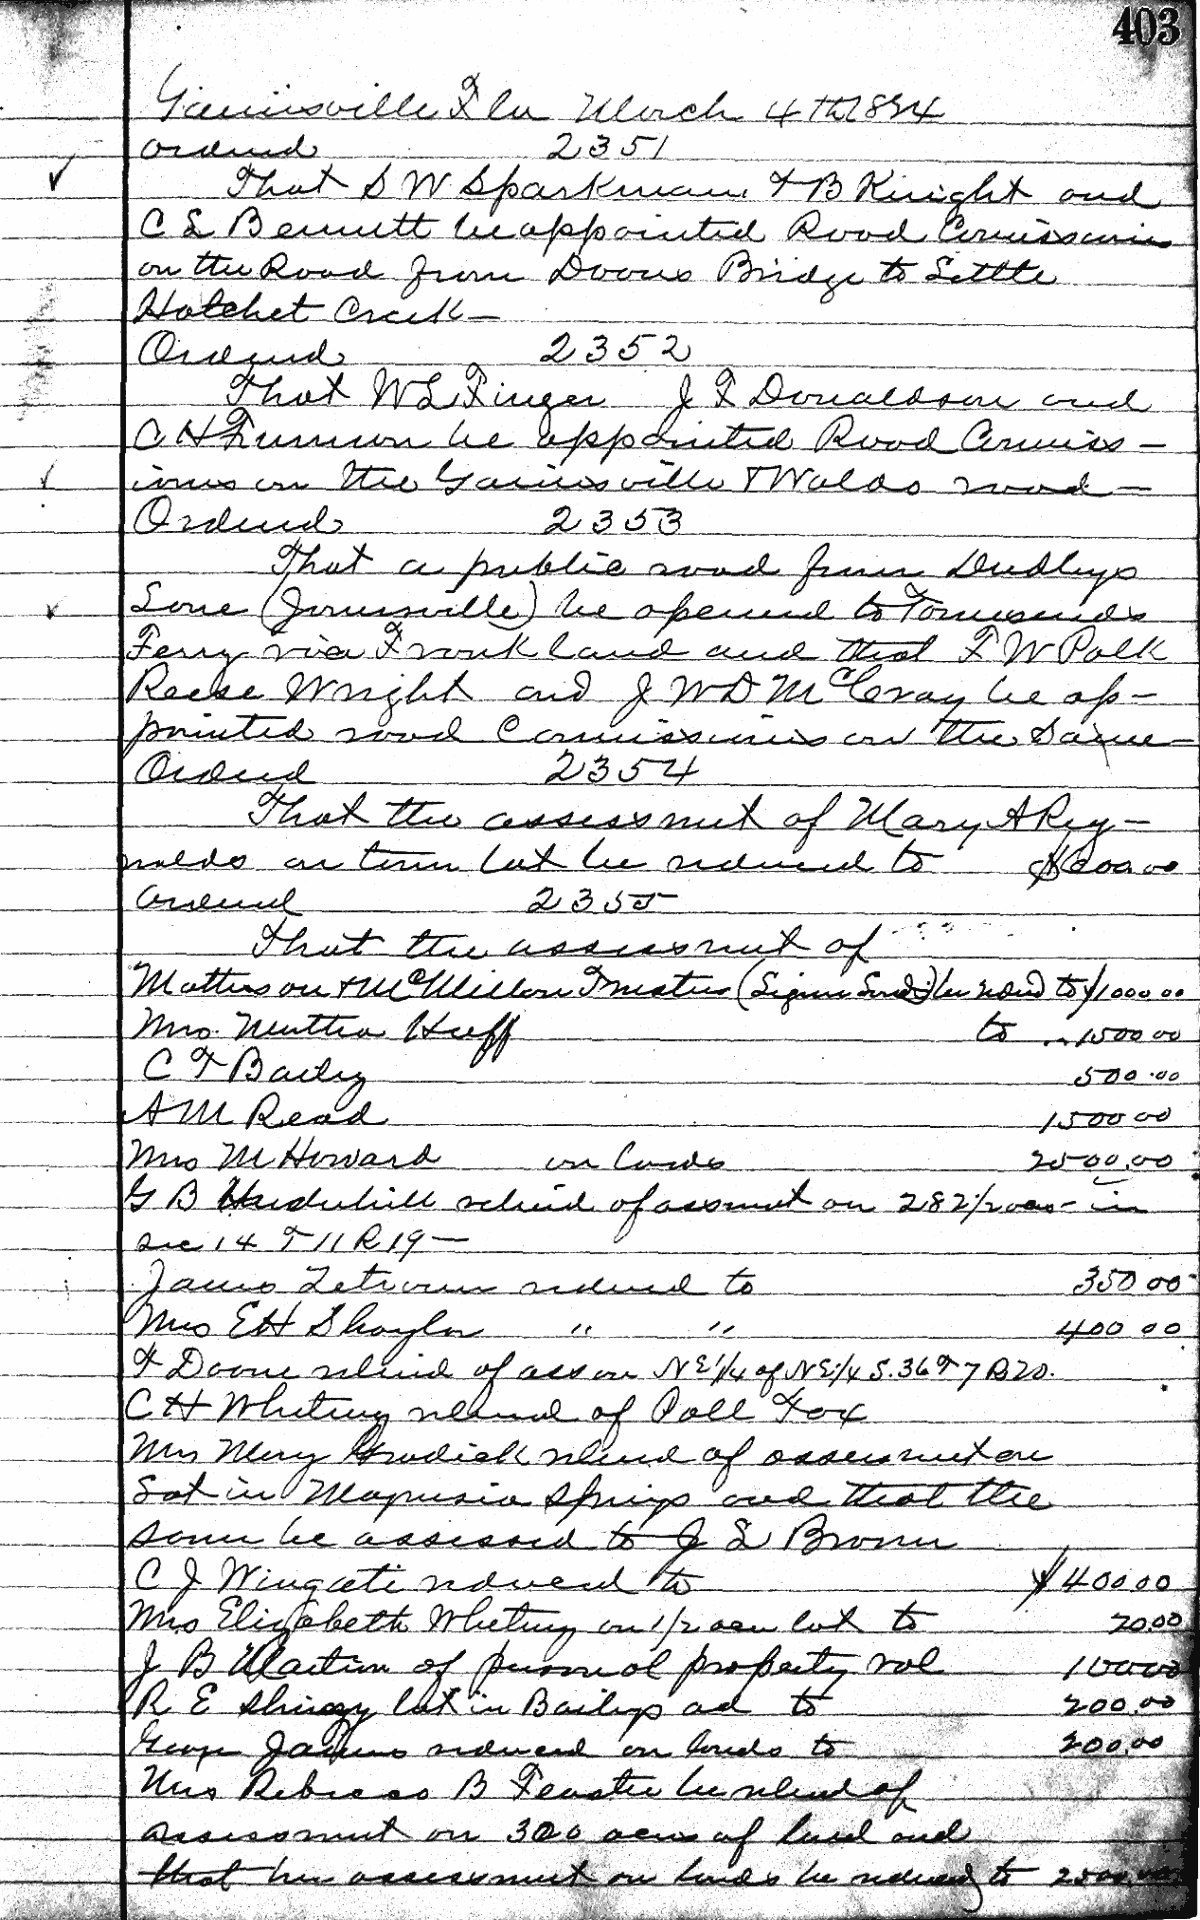 403
Gainesville Fla March 4th 1884
Ordered 2351
That S W Sparkman, F B Knight and
C L Bennett be appointed Road Comissioners
on the Road from Doons Bridge to Little
Hatchet Creek —
Ordered 2352
That W L Finger J F Donaldson and
C H Furman be appointed Road Commiss —
ioners on the Gainesville & Waldo road —
Ordered 2353
That a public road from Dudleys
Lane (Jonesville) be opened to Townsends
Ferry via Frankland and that F W Polk
Reese Wright and J W D McCray be ap —
pointed road Commissioners on the Same —
Ordered 2354
That the assessment of Mary A Rey —
nolds on town lot be reduced to $600.00
Ordered 2355
That the assessment of
Matheson & McMillan Trustees ( ) be reduced to $1000.00
Mrs. Martha Huff to 1500.00
C F Bailey 500.00
A M Read 1500.00
Mrs M Howard on lands 2500.00
G B Underhill relieved of assessment on 282 1/2 acres in
sec 14 T 11 R 19 —
James Tetrower reduced to 350.00
Mrs E H Shaylor " " 400.00
F Doone relieved of ass on NE 1/4 of NE 1/4 S. 36 T 7 R 20.
C H Whiting relieved of Poll Tax
Mrs Mary relieved of assessment on
Lot in Magnesia Springs and that the
same be assessed to J L Brown
C J Wingate reduced to $400.00
Mrs Elizabeth Whiting on 1/2 acre lot to 20.00
J B Martin of personal property val 100.00
R E lot in Baileys ad to 200.00
George James reduced on lands to 200.00
Mrs Rebecca B Feaster be relieved of
assessment on 300 acres of land and
that her assessment on lands be reduced to 2500.00